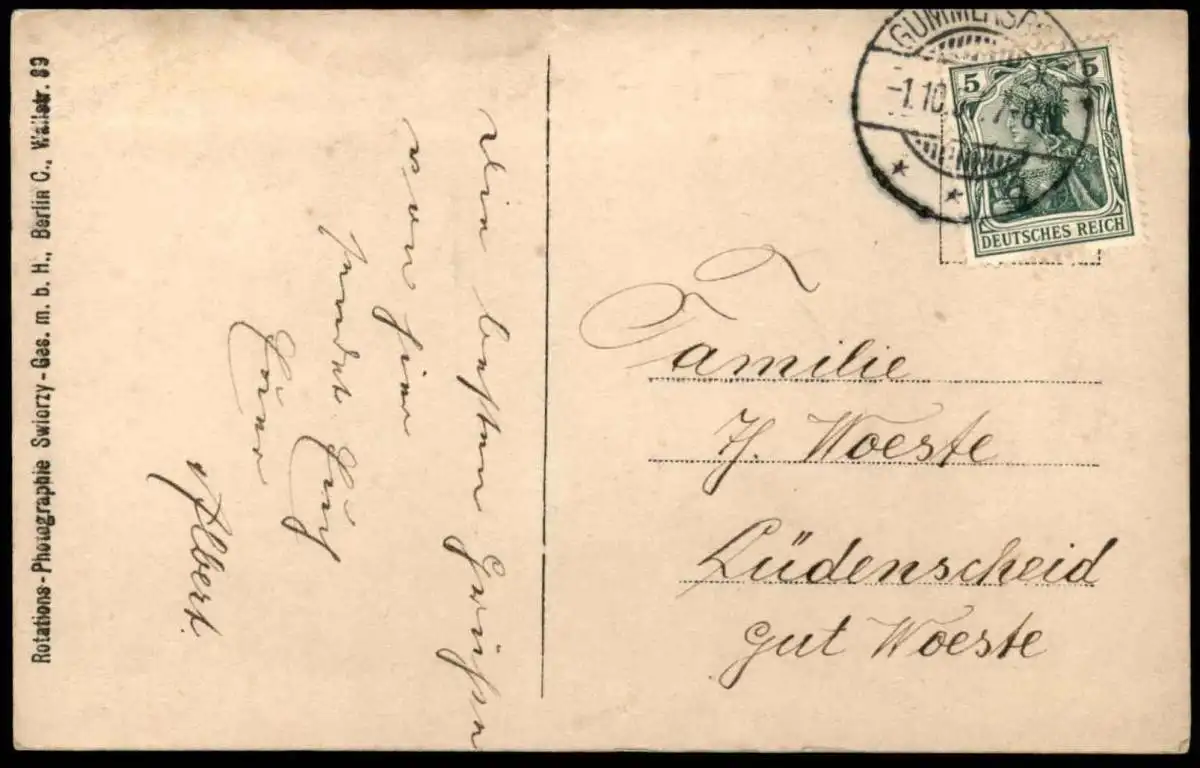 Rotations-Photographie Swiorzy-Ges. m. b. H., Berlin C., Wallstr. 89
Die besten Grüße
von hier
sendet Euch
Euer
Albert.
GUMMERSB
-1.10.
5 5
DEUTSCHES REICH
Familie
H. Woeste
Lüdenscheid
Gut Woeste